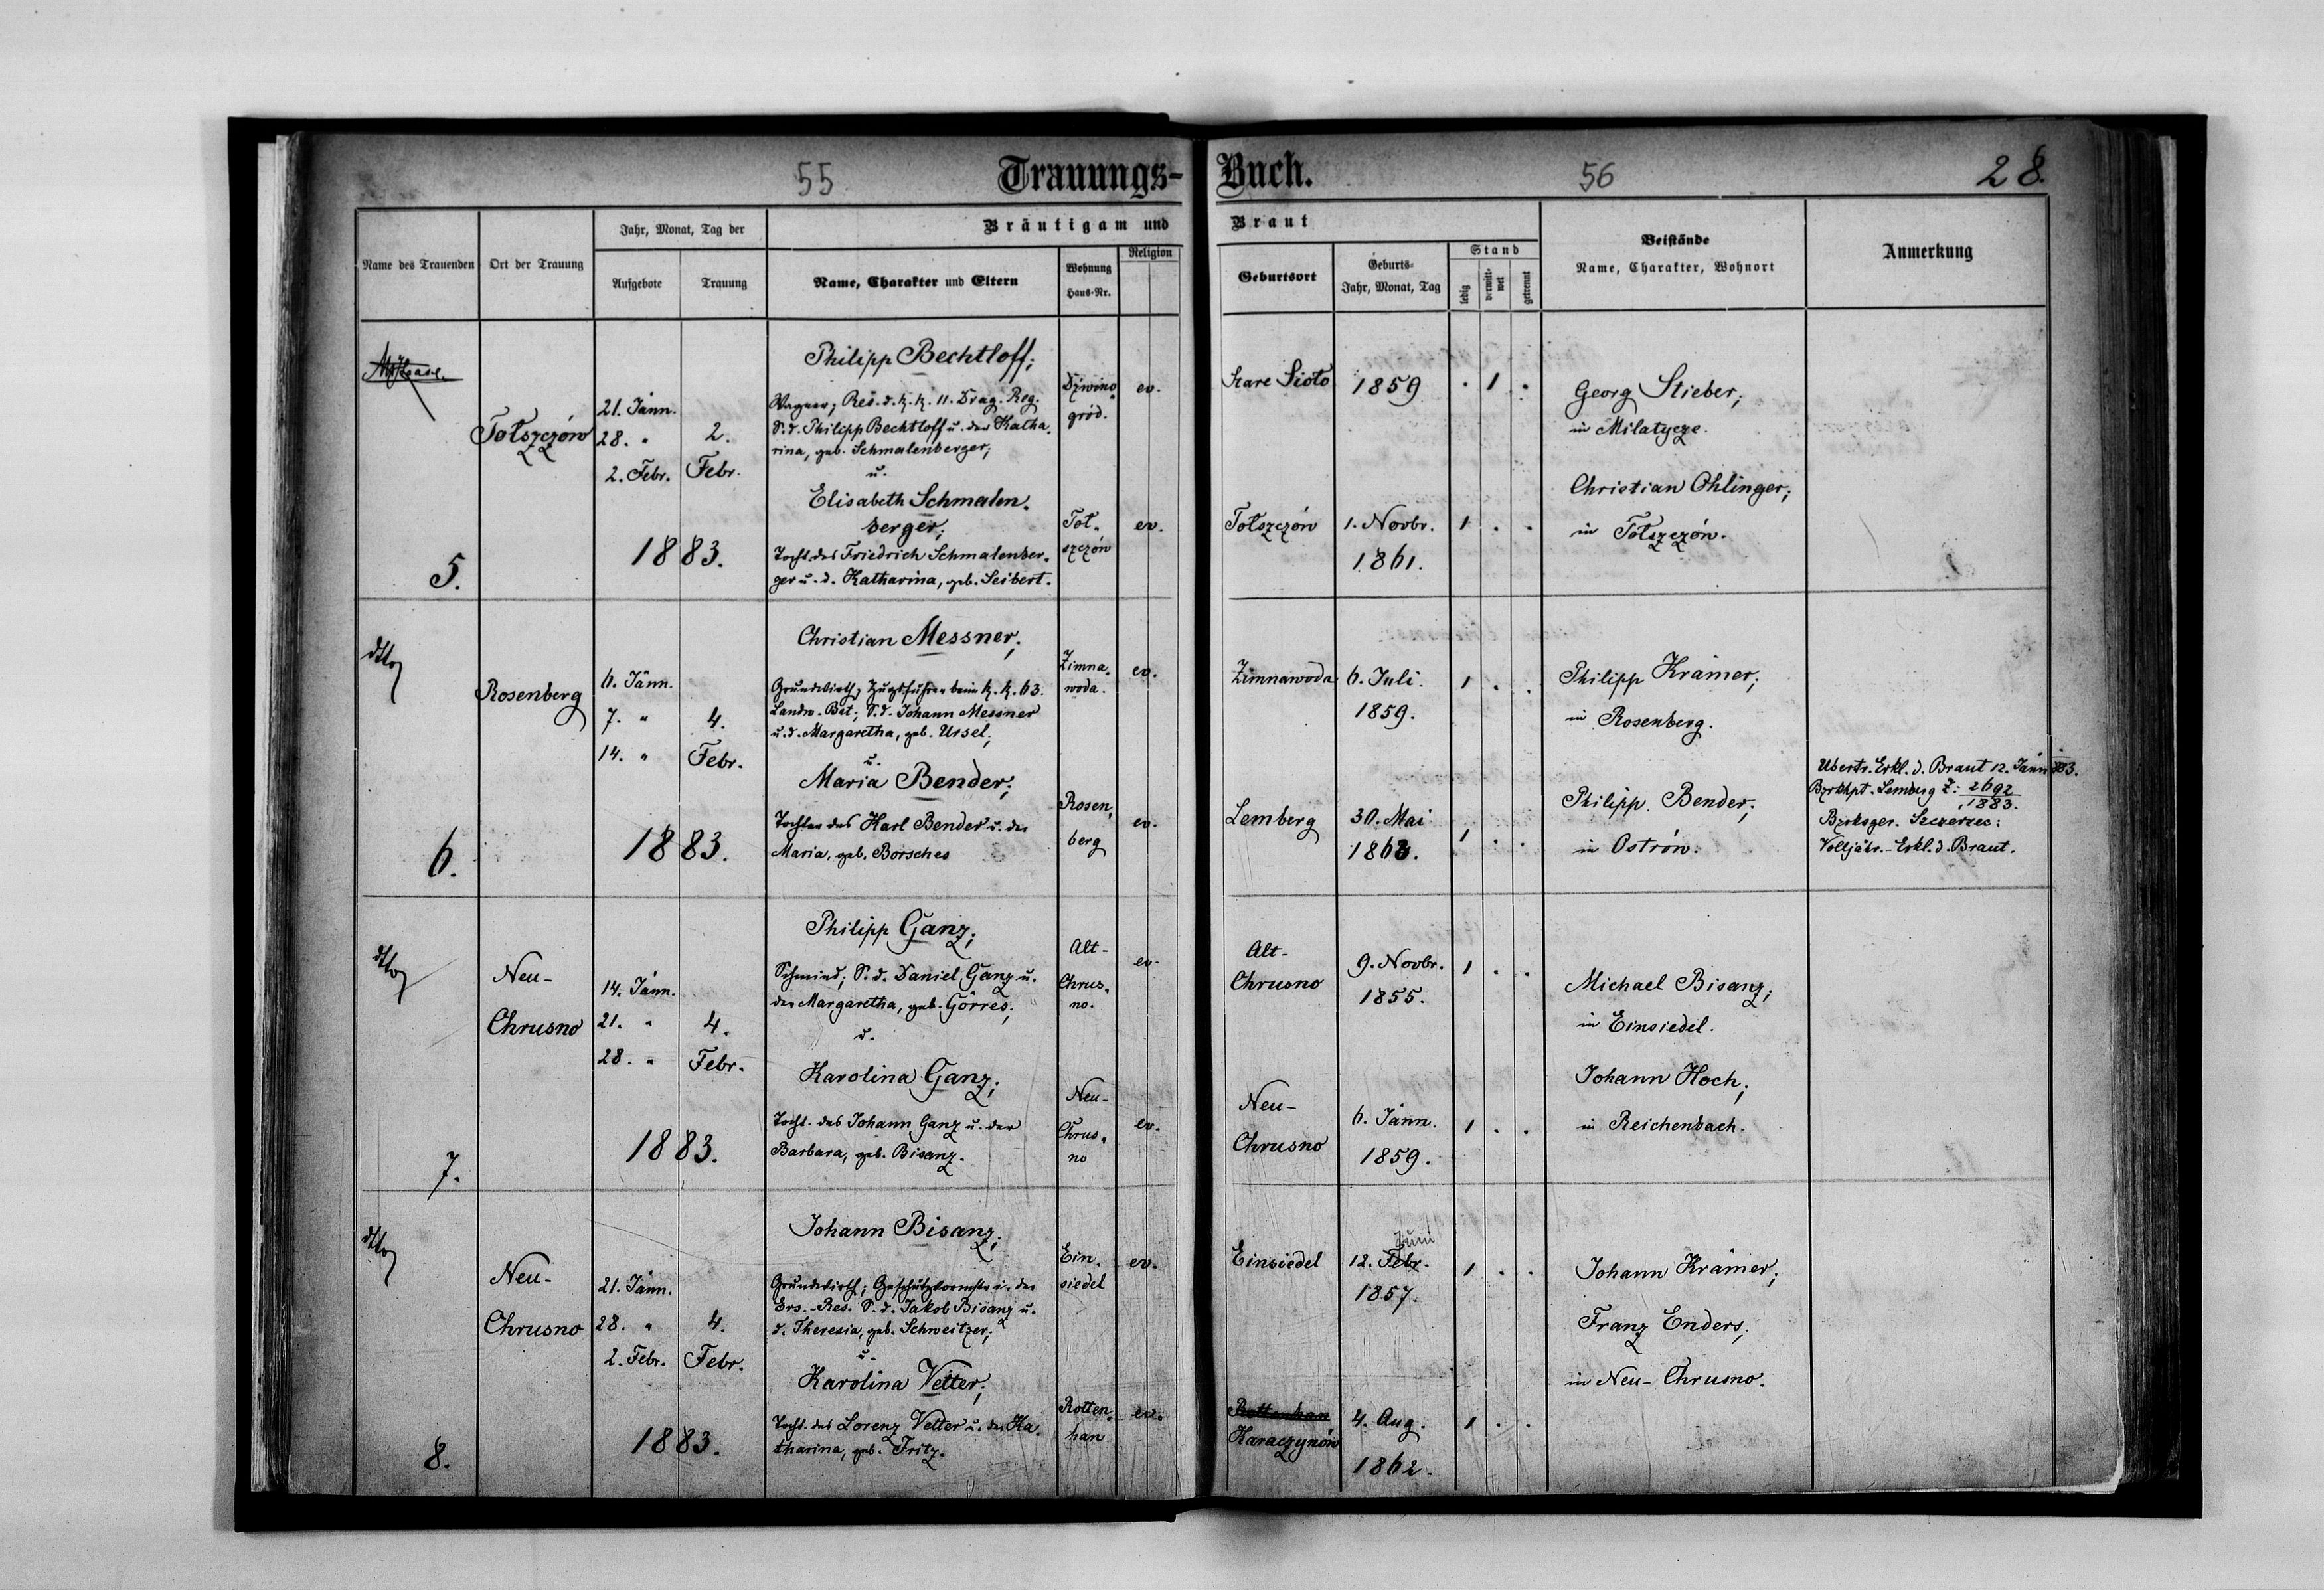 55
Trauungs-
Buch.
56
28.
Name des Trauenden
Ort der Trauung
Jahr, Monat, Tag der
Aufgebote
Trauung
Bräutigam und
Name, Charakter und Eltern
Wohnung
Haus-Nr.
Religion
Braut
Geburtsort
Geburts-
Jahr, Monat, Tag
Stand
ledig
verwitt-
wet
getrennt
Beistände
Name, Charakter, Wohnort
Anmerkung
5.
Tołszczów
21. Jänn.
28. "
2. Febr.
2.
Febr.
1883.
Philipp Bechtloff;
Wagner; Res. d. k. k. 11. Drag. Reg.
S. d. Philipp Bechtloff u. der Katha-
rina, geb. Schmalenberger;
u.
Elisabeth Schmalen-
berger;
Tocht. des Friedrich Schmalenber-
ger u. d. Katharina, geb. Seibert.
Dźwino-
gród.
ev.
Toł-
szczów
ev.
Stare Sioło
1859
. 1 .
Tołszczów
1. Novbr.
1861.
1 . .
Georg Stieber;
in Milatycze.
Christian Ohlinger;
in Tołszczów.
dtto
6.
Rosenberg
6. Jänn.
7. "
14. "
4.
Febr.
1883.
Christian Messner;
Grundwirth, Zugsführer beim k. k. 63.
Landw. Bat; S. d. Johann Messner
u. d. Margaretha, geb. Ursel;
u.
Maria Bender;
Tochter des Karl Bender u. der
Maria, geb. Borsches
Zimna-
woda.
ev.
Rosen-
berg
ev.
Zimnawoda
6. Juli.
1859.
1 . .
Lemberg
30. Mai
1863.
1 . .
Philipp Krämer;
in Rosenberg.
Philipp Bender;
in Ostrów.
Übertr. Erkl. d. Braut 12. Jänn 883.
Bzrkhpt. Lemberg Z: 2692
1883.
Bzrksger. Szczerzec:
Volljähr.-Erkl. d. Braut.
dtto
7.
Neu-
Chrusno
14. Jänn.
21. "
28. "
4.
Febr.
1883.
Philipp Ganz;
Schmied; S. d. Daniel Ganz u.
der Margaretha, geb. Görres;
u.
Karolina Ganz;
Tocht. des Johann Ganz u. der
Barbara, geb. Bisanz.
Alt-
Chrus-
no.
ev.
Neu-
Chrus-
no
ev.
Alt-
Chrusno
9. Novbr.
1855.
1 . .
Neu-
Chrusno
6. Jänn.
1859.
1 . .
Michael Bisanz;
in Einsiedel.
Johann Hoch;
in Reichenbach.
dtto
8.
Neu-
Chrusno
21. Jänn.
28. "
2. Febr.
4.
Febr.
1883.
Johann Bisanz;
Grundwirth; Geschützvormstr i. der
Ers.-Res. S. d. Jakob Bisanz u.
d. Theresia, geb. Schweitzer;
u.
Karolina Vetter;
Tocht. des Lorenz Vetter u. der Ka-
tharina, geb. Fritz.
Ein-
siedel
ev.
Rotten-
han
ev.
Einsiedel
Juni
12. Febr.
1857.
1 . .
Rottenhan
Karaczynów
4. Aug.
1862.
1 . .
Johann Krämer;
Franz Enders;
in Neu-Chrusno.